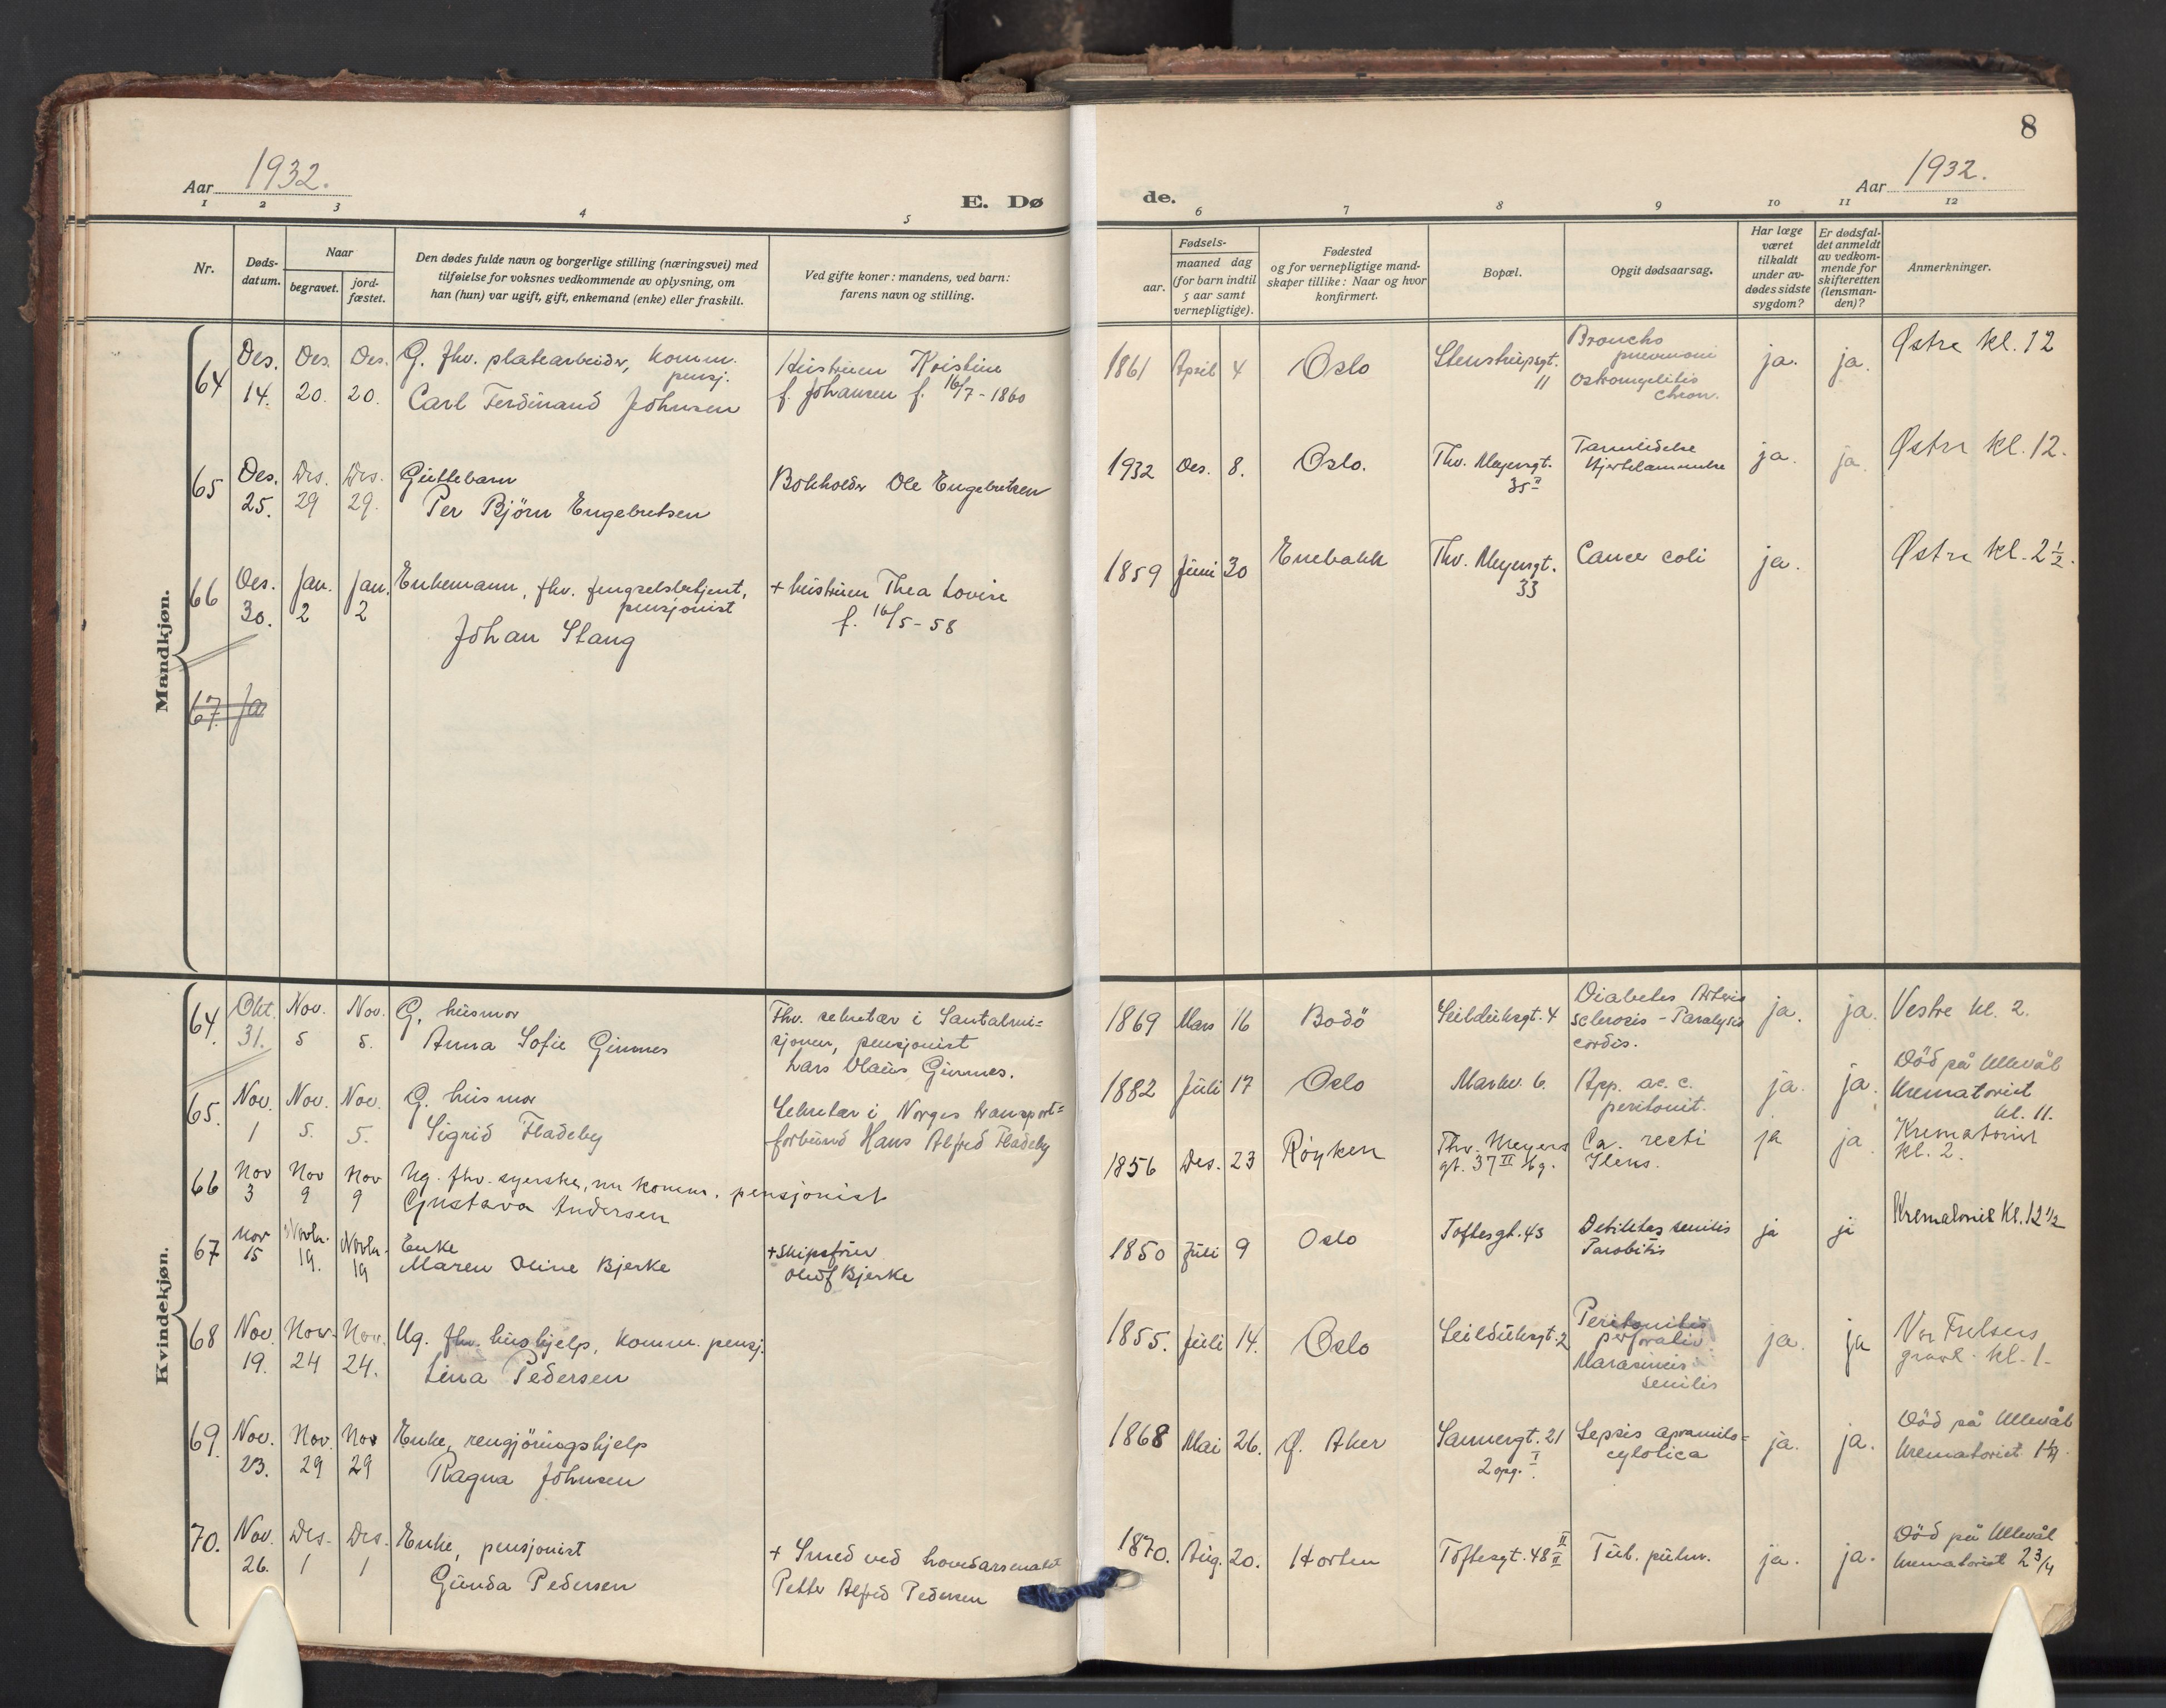 8
Aar 1932.
E. Dø
de.
Aar 1932.
1 2 3 4 5 6 7 8 9 10 11 12
Nr.
Døds-
datum.
Naar
begravet.
jord-
fæstet.
Den dødes fulde navn og borgerlige stilling (næringsvei) med
tilføielse for voksnes vedkommende av oplysning, om
han (hun) var ugift, gift, enkemand (enke) eller fraskilt.
Ved gifte koner: mandens, ved barn:
farens navn og stilling.
Fødsels-
aar.
maaned dag
(for barn indtil
5 aar samt
vernepligtige).
Fødested
og for vernepligtige mand-
skaper tillike: Naar og hvor
konfirmert.
Bopæl.
Opgit dødsaarsag.
Har læge
været
tilkaldt
under av-
dødes sidste
sygdom?
Er dødsfal-
det anmeldt
av vedkom-
mende for
skifteretten
(lensman-
den)?
Anmerkninger.
Mandkjøn.
64 Des. 14. Des. 20. Des. 20.
G. fhv. platearbeider, komm.
pensj.
Carl Ferdinand Johnsen
Hustruen Kristine
f. Johansen f. 16/7-1860
1861 April 4 Oslo
Stenstrupsgt.
11
Broncho
pneumoni
Ostromyelitis
chron.
ja. ja.
Østre kl. 12
65 Des. 25. Des. 29 Des. 29.
Guttebarn
Per Bjørn Engebretsen
Bokholder Ole Engebretsen
1932 Des. 8. Oslo.
Thv. Meyersgt.
35 II
Tarmlidelse
Hjertelammelse
ja. ja.
Østre kl. 12.
66 Des. 30. Jan. 2 Jan. 2
Enkemann, fhv. fengselsbetjent,
pensjonist
Johan Stang
+ hustruen Thea Lovise
f. 16/5-58
1859 Juni 30 Enebakk
Thv. Meyersgt.
33
Cancer coli
ja.
Østre kl. 2 1/2.
67. Ja
Kvindekjøn.
64. Okt. 31. Nov. 5 Nov. 5.
G. husmor
Anna Sofie Gimnes
Fhv. sekretær i Santalmi=
sjonen, pensjonist
Lars Olaus Gimnes.
1869 Mars 16 Bodö
Seilduksgt. 4
Diabetes Arterio
sclerosis - Paralysis
cordis.
ja. ja.
Vestre kl. 2.
65. Nov. 1 Nov. 5. Nov. 5.
G. husmor
Sigrid Fladeby
Sekretær i Norges transport=
forbund Hans Alfred Fladeby
1882 Juli 17 Oslo
Markv. 6.
App. ac. c.
peritonit.
ja. ja.
Död på Ullevål
Krematoriet
kl. 11.
66 Nov 3 Nov 9 Nov 9
Ug. fhv. syerske, nu komm. pensjonist
Gustava Andersen
1856 Des. 23 Røyken
Thv. Meyers
gt. 37 II Hg.
Ca. recti
Ileus.
ja ja
Krematoriet
kl. 2.
67 Nov 15 Novbr. 19. Novbr. 19
Enke
Maren Oline Bjerke
+ Skipsfører
Oluf Bjerke
1850 Juli 9 Oslo
Toftesgt. 43
Debilitas senilis
ja ja
Krematoriet Kl. 12 1/2
68 Nov. 19. Nov. 24 Nov. 24.
Ug. fhv. hushjelp, komm. pensj.
Lina Pedersen
1855. Juli 14. Oslo
Seilduksgt. 2
Peritonitis
perforativ.
Marasmus
senilis
ja. ja
Vor Frelsers
gravl. kl. 1-
69. Nov. 23. Nov. 29 Nov 29
Enke, rengjöringshjelp
Ragna Johnsen
1868 Mai 26. Ø. Aker
Sannergt. 21
2 opg. I
Sepsis agranulo=
cytotica
ja. ja.
Död på Ullevål
Krematoriet
70. Nov. 26. Des. 1 Des. 1
Enke, pensjonist
Gunda Pedersen
+ Smed ved hovedarsenalet
Petter Alfred Pedersen
1870. Aug. 20. Horten
Toftesgt. 48 II
Tub. pulm.
ja. ja.
Död på Ullevål
Krematoriet 2 3/4